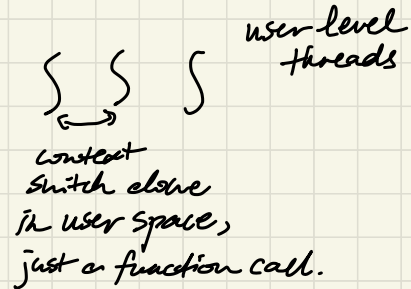 user level
threads
context
switch done
in user space,
just a function call.